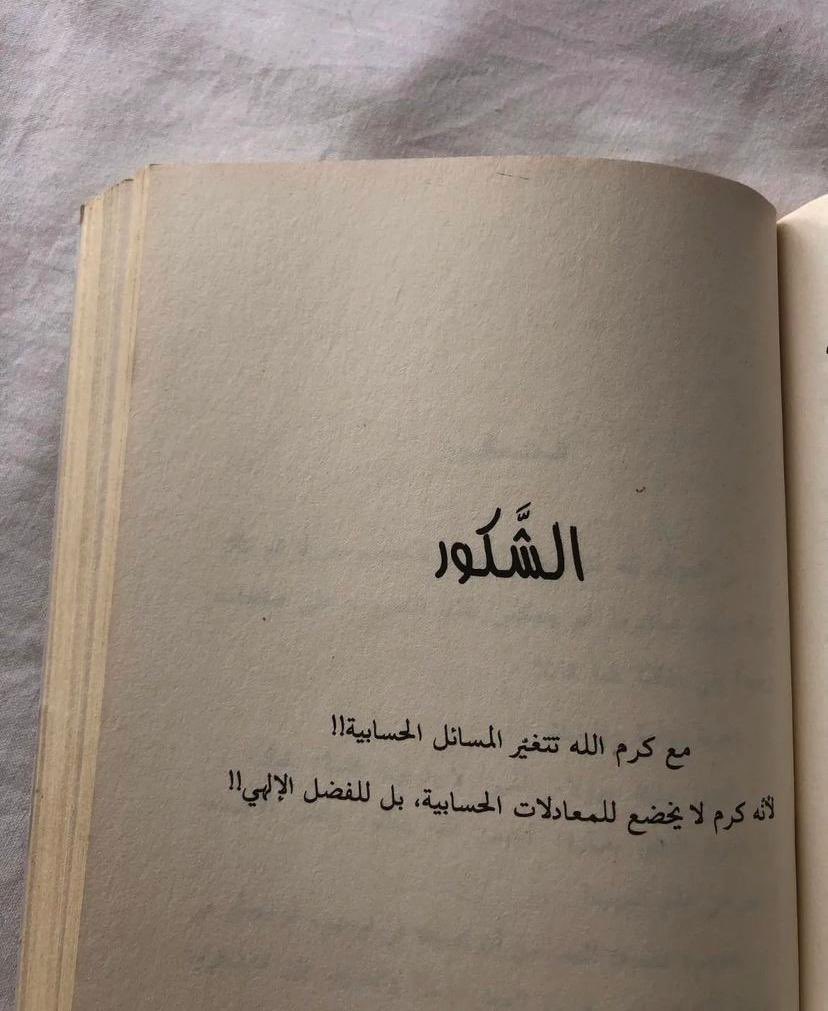 الشَّكور
مع كرم الله تتغيّر المسائل الحسابية!!
لأنّه كرم لا يخضع للمعادلات الحسابية، بل للفضل الإلهي!!